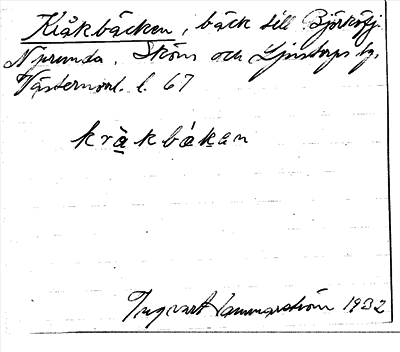 Kråkbäcken, bäck till Björköfj.
Njurunda. Sköns och Ljustorps tg.
Västernorrl. l. 67
kràkbákan
Ingvart Hammarström 1932